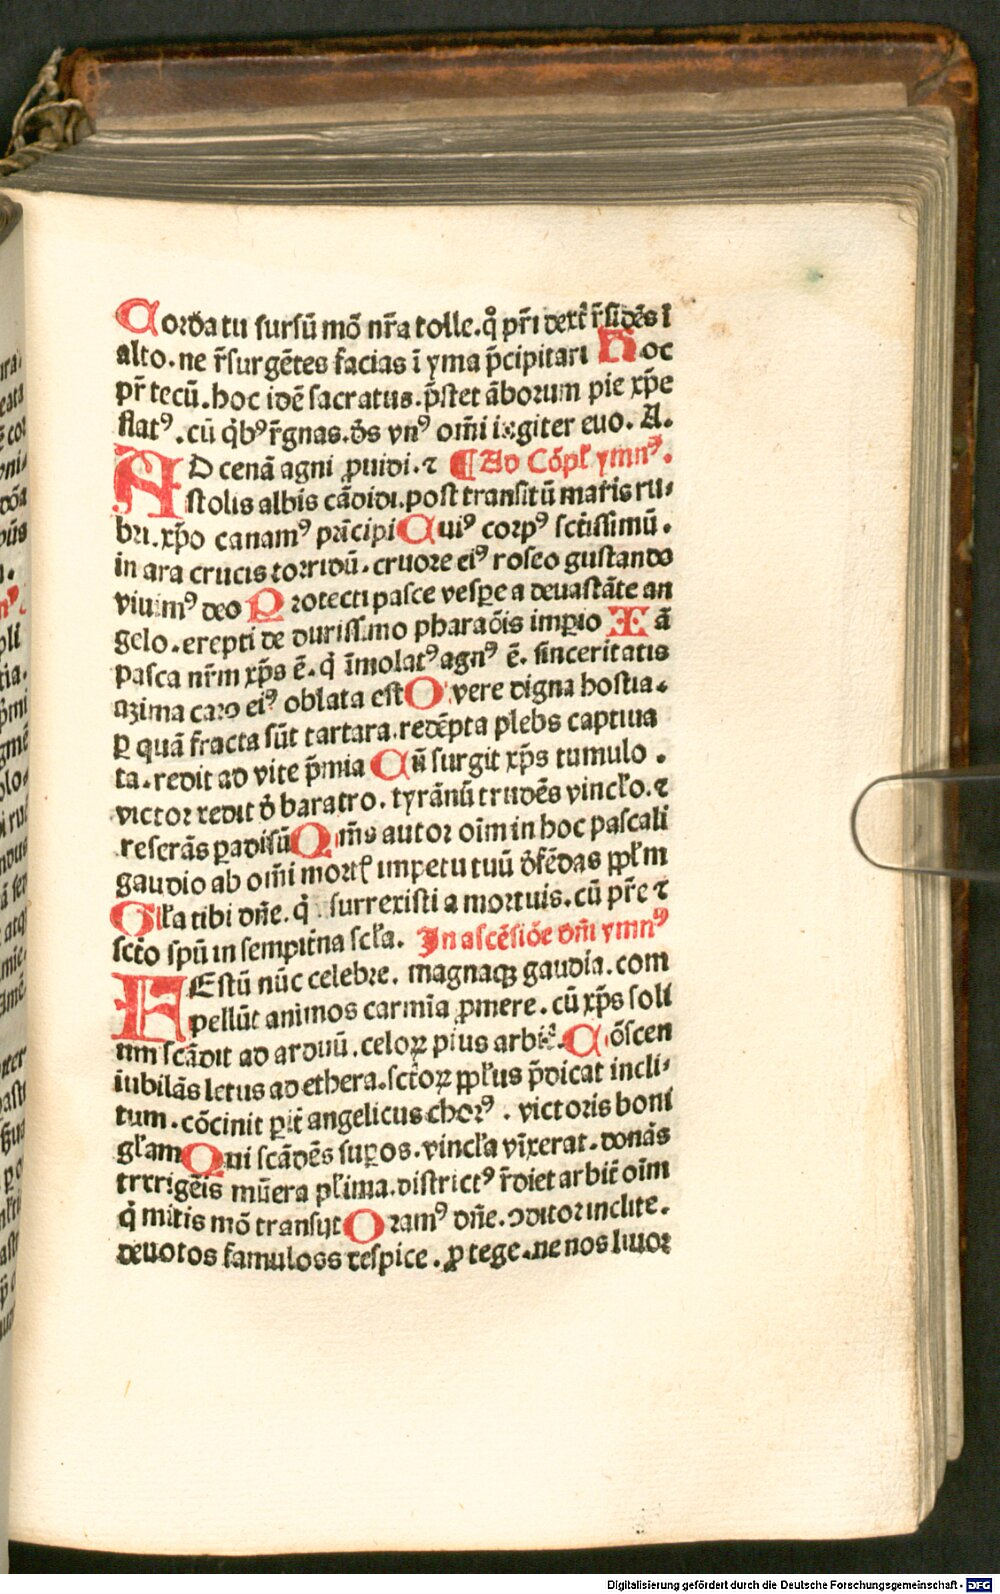 Corda tu sursū mō nr̄a tolle. q̊ pr̄i dext̄ r̄sidēs ī
alto. ne r̄surgētes facias ī yma p̄cipitari Hoc
pr̄ tecū. hoc idē sacratus. p̄stet āborum pie xp̄e
flatꝰ. cū q̄bꝰ r̄gnas. d̄s vnꝰ om̄i iugiter euo. A.
AD cenā agni ꝓuidi. ⁊ ¶ Ad Cōpl̄ ymnꝰ.
stolis albis cādidi. post transitū maris ru⸗
bri. xp̄o canamꝰ prīcipi Cuiꝰ corpꝰ sctissimū.
in ara crucis torridū. cruore eiꝰ roseo gustando
viuimꝰ deo Protecti pasce vesꝑe a deuastāte an
gelo. erepti de durissimo pharaōis imꝑio Iā
pasca nr̄m xp̄s ē. q̇ īmolatꝰ agnꝰ ē. sinceritatis
azima caro eiꝰ oblata est O vere digna hostia.
ꝑ quā fracta sūt tartara. redēpta plebs captiua
ta. redit ad vite p̄mia Cū surgit xp̄s tumulo.
victor redit d̄ baratro. tyrānū trudēs vincl̄o. ⁊
reserās ꝑadisū Qm̄s autor oīm in hoc pascali
gaudio ab om̄i mort̄ impetu tuū d̄fēdas ppl̄m
Gl̄a tibi dn̄e. q̇ surrexisti a mortuis. cū pr̄e ⁊
scto spū in sempit̄na scl̄a. In ascēsiōe dn̄i ymnꝰ
FEstū nūc celebre. magnaqꝫ gaudia. com
pellūt animos carmīa ꝓmere. cū xp̄s soli
um scādit ad arduū. celoꝝ pius arbit̄. Cōscen
iubilās letus ad ethera. sctōꝝ ppl̄us p̄dicat incli⸗
tum. cōcinit ꝑit̄ angelicus chorꝰ. victoris boni
gl̄am Qui scādēs suꝑos. vincl̄a vīxerat. donās
trrigēis mūera pl̄ima. districtꝰ r̄diet arbit̄ oīm
q̇ mitis mō transijt Oramꝰ dn̄e. ↄditor inclite.
deuotos famuloss respice. ꝓtege. ne nos liuor
Digitalisierung gefördert durch die Deutsche Forschungsgemeinschaft - DFG